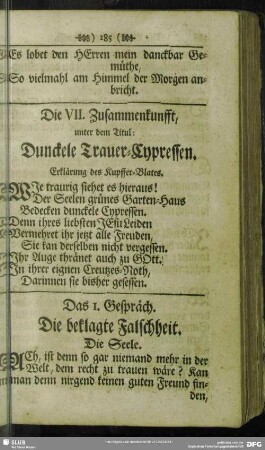 )o( 185 )o(
Es lobet den HErren mein danckbar Ge-
müthe,
So vielmahl am Himmel der Morgen an-
bricht.
Die VII. Zusammenkunfft,
unter dem Titul:
Dunckele Trauer-Cypressen.
Erklärung des Kupffer-Blates.
WJe traurig siehet es hieraus!
Der Seelen grünes Garten-Haus
Bedecken dunckele Cypressen.
Denn ihres liebsten JEsu Leiden
Vermehret ihr jetzt alle Freuden,
Sie kan derselben nicht vergessen.
Ihr Auge thränet auch zu GOtt,
In ihrer eignen Creutzes-Noth,
Darinnen sie bisher gesessen.
Das 1. Gespräch.
Die beklagte Falschheit.
Die Seele.
ACh, ist denn so gar niemand mehr in der
Welt, dem recht zu trauen wäre? Kan
man denn nirgend keinen guten Freund fin-
den,
SLUB